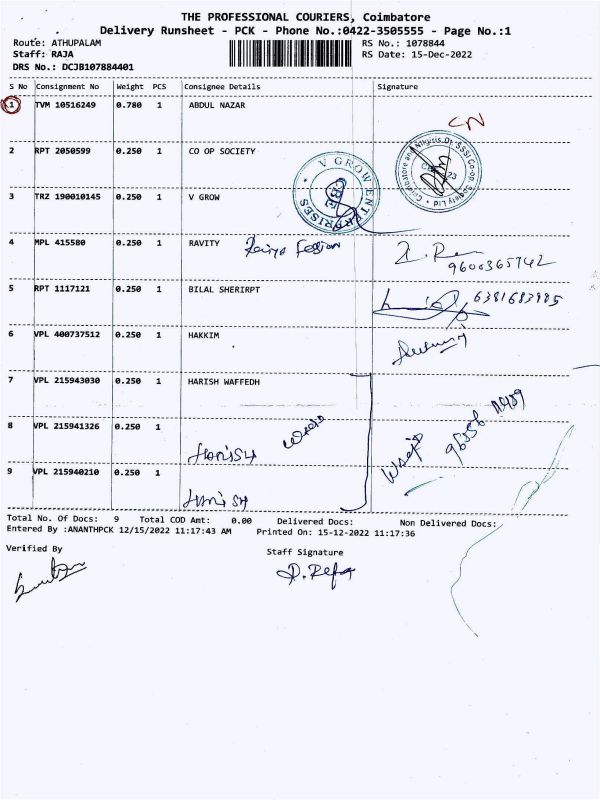 THE PROFESSIONAL COURIERS, Coimbatore
Delivery Runsheet - PCK - Phone No.:0422-3505555 - Page No.:1
Route: ATHUPALAM RS No.: 1078844
Staff: RAJA RS Date: 15-Dec-2022
DRS No.: DCJB107884401
S No Consignment No Weight PCS Consignee Details Signature
1 TVM 10516249 0.780 1 ABDUL NAZAR
CN
2 RPT 2050599 0.250 1 CO OP SOCIETY
3 TRZ 190010145 0.250 1 V GROW
V GROW ENTERPRISES
CBE
4 MPL 415580 0.250 1 RAVITY
9600365742
5 RPT 1117121 0.250 1 BILAL SHERIRPT
6381683985
6 VPL 400737512 0.250 1 HAKKIM
7 VPL 215943030 0.250 1 HARISH WAFFEDH
8 VPL 215941326 0.250 1
HARISH
9 VPL 215940210 0.250 1
HARISH
Total No. Of Docs: 9 Total COD Amt: 0.00 Delivered Docs: Non Delivered Docs:
Entered By :ANANTHPCK 12/15/2022 11:17:43 AM Printed On: 15-12-2022 11:17:36
Verified By Staff Signature